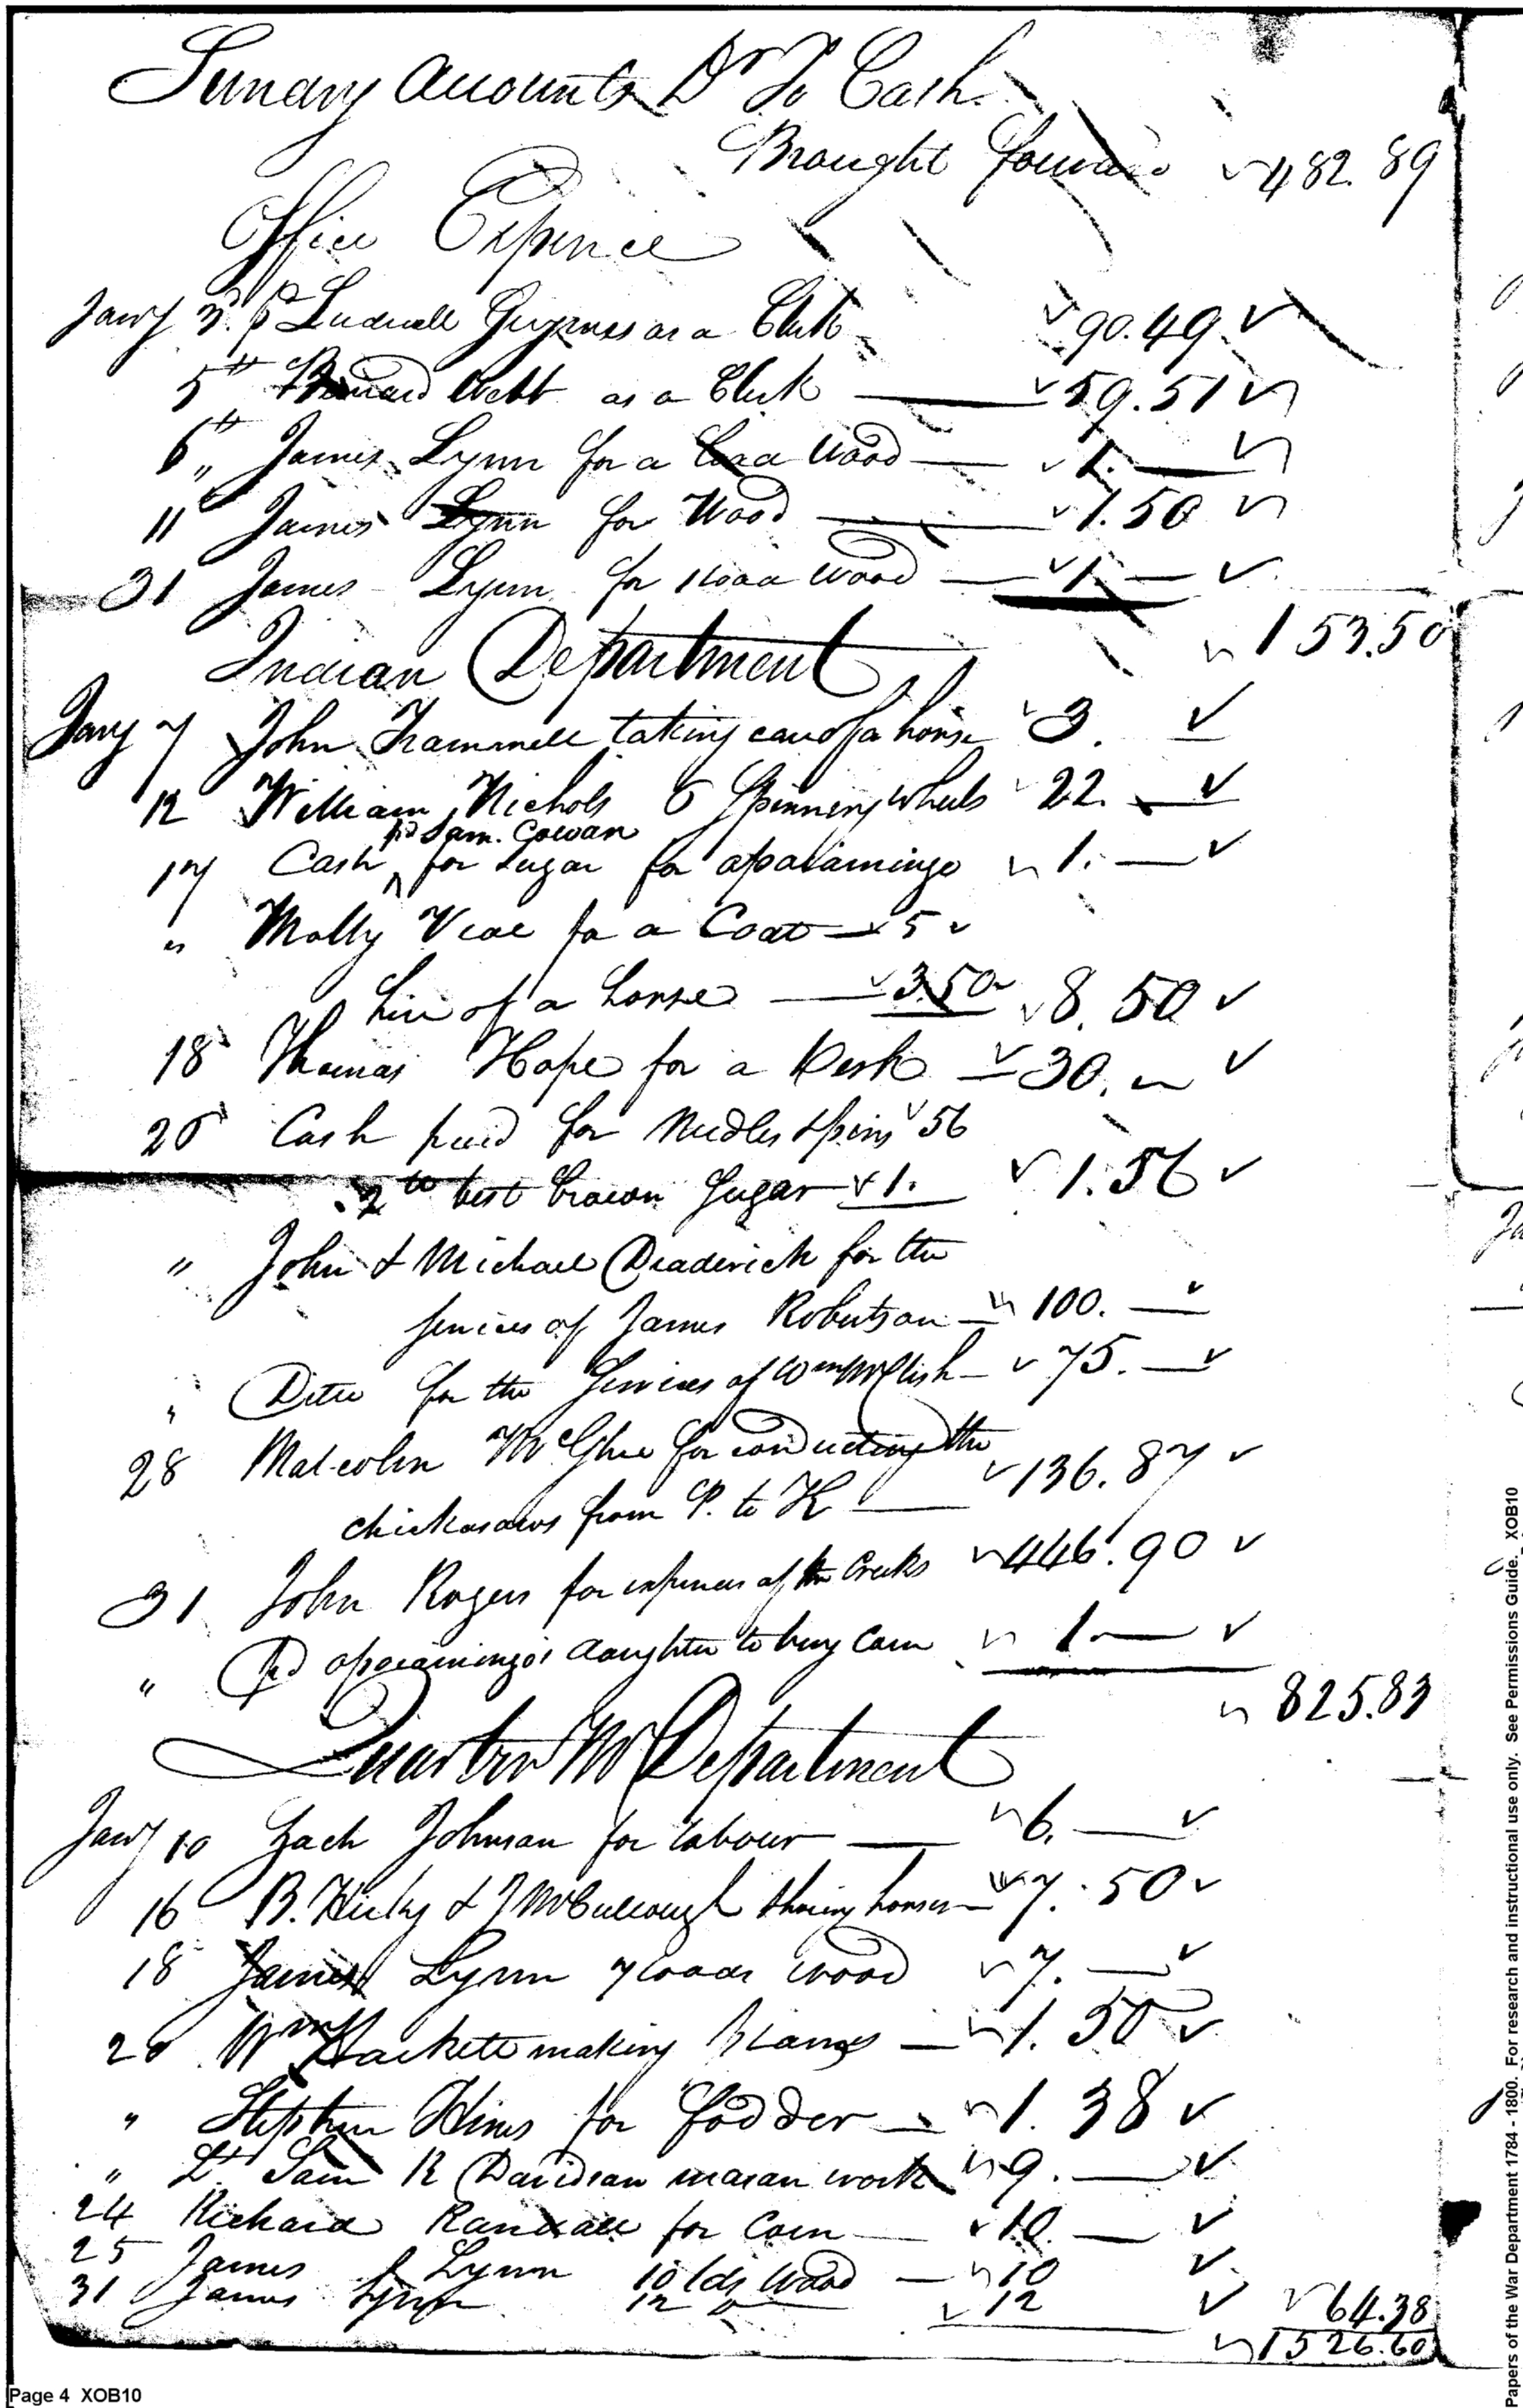 Sundry Accounts Dr To Cash
Brought forward 482.89
Office Expence
Jany 3d pd Ludwell Grymes as a Clerk 90.49
5th Webb as a Clerk 59.51
6th James Lynn for a Load Wood 1.
11th James Lynn for Wood 1.50
31 James Lynn for 1 Load Wood 1
153.50
Indian Department
Jany 7 John Trammell taking care of a horse 3.
12 William Nichols 6 Spinning wheels 22.
pd Sam. Cowan
17 Cash ^ for Sugar for opaiamingo 1.
" Molly Veal for a Coat 5
hire of a horse 3.50 8.50
18 Thomas Hope for a Desk 30.
20 Cash paid for Needles & pins 56
2 lb best brown Sugar 1. 1.56
" John & Michael Deaderick for the
services of James Robertson 100.
" Ditto for the Services of Wm McClish 75.
28 Malcolm McGhee for conducting the
chickasaws from P. to K 136.87
31 John Rogers for expences of the Creeks 446.90
" pd opiamingo's daughter to buy Corn 1.
825.83
Quarter M Department
Jany 10 Zach Johnson for labour 6.
16 B. Hicky & J McCullough shoeing horses 7.50
18 James Lynn 7 loads wood 7.
20 Wm Hackett making 1.50
" Stephen Hines for fodder 1.38
" Lt. Sam R Davidson mason work 9.
24 Richard Randall for Corn 10.
25 James Lynn 10 lds Wood 10
31 James Lynn 12 " 12
64.38
1526.60
Page 4 XOB10
Papers of the War Department 1784 - 1800. For research and instructional use only. See Permissions Guide. XOB10